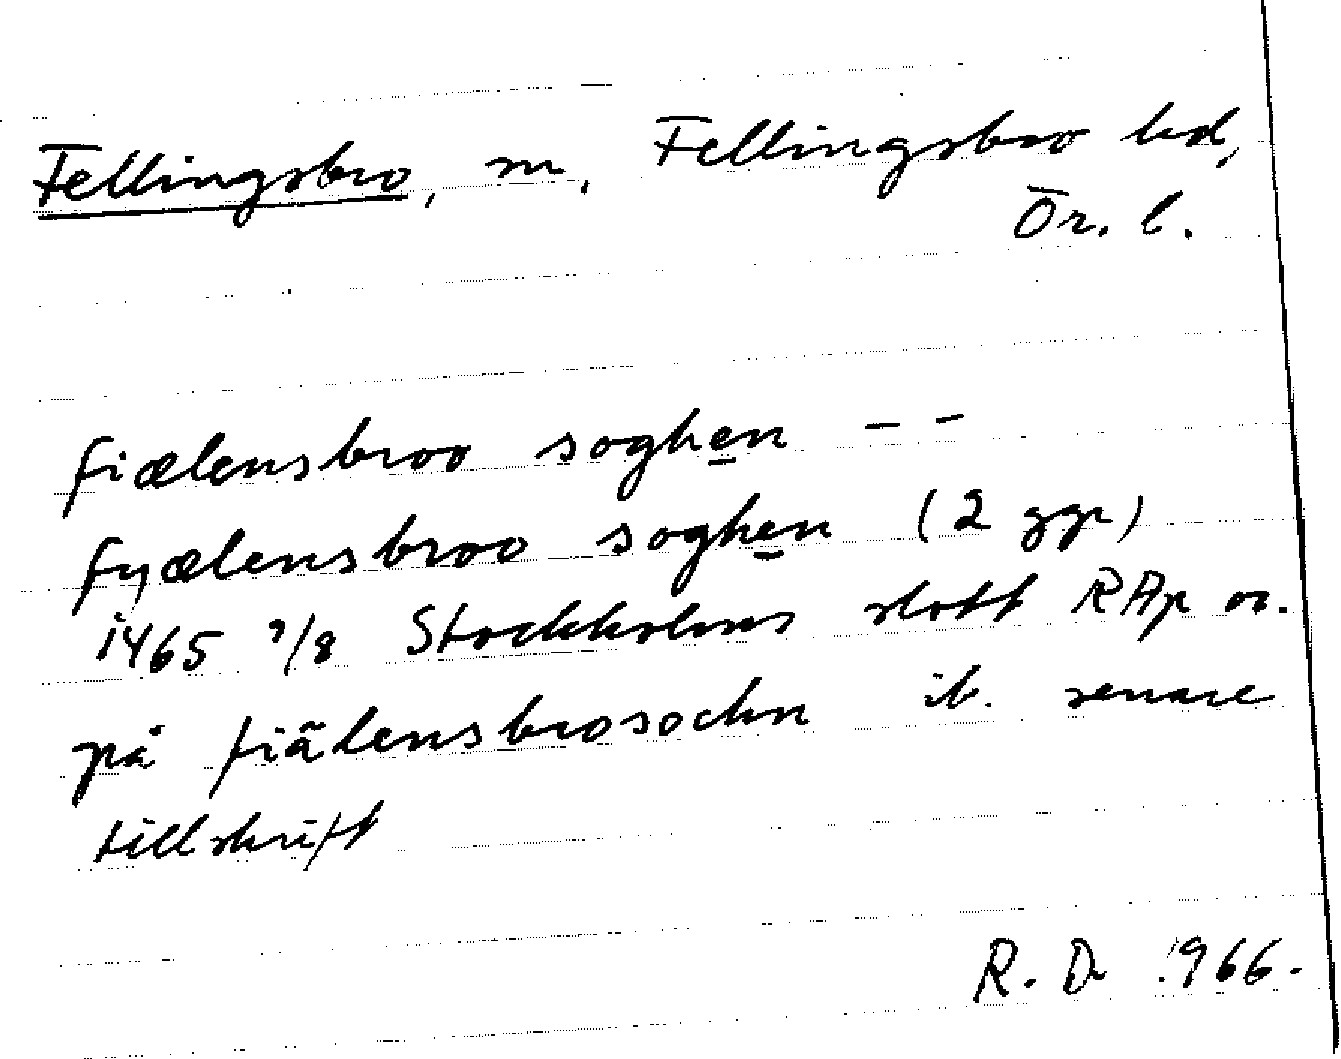 Fellingsbro, sn, Fellingsbro hd,
Ör. l.
fiælensbroo soghen – –
fyælensbroo soghen (2 ggr)
1465 9/8 Stockholms slott RAp or.
på fiälensbrosochn ib. senare
tillskrift
R. D. 1966.